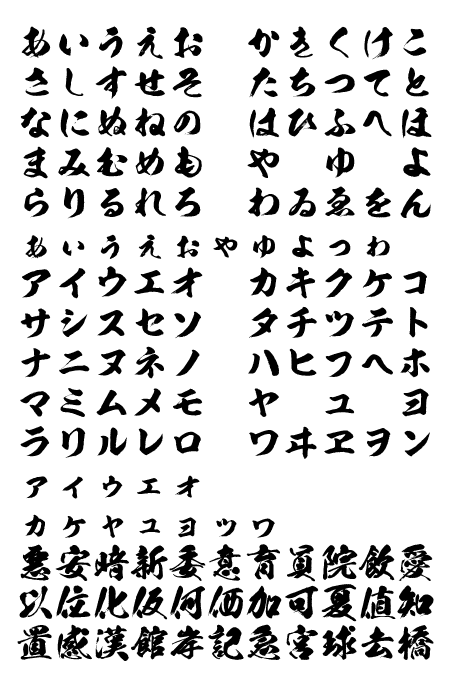 あいうえお かきくけこ
さしすせそ たちつてと
なにぬねの はひふへほ
まみむめも や ゆ よ
らりるれろ わゐゑをん
ぁぃぅぇぉゃゅょっゎ
アイウエオ カキクケコ
サシスセソ タチツテト
ナニヌネノ ハヒフヘホ
マミムメモ ヤ ユ ヨ
ラリルレロ ワヰヱヲン
ァィゥェォ
ヵヶャュョッヮ
悪安暗新委意育員院飲愛
以位化仮何価加可夏値知
置感漢館岸記急宮球去橋